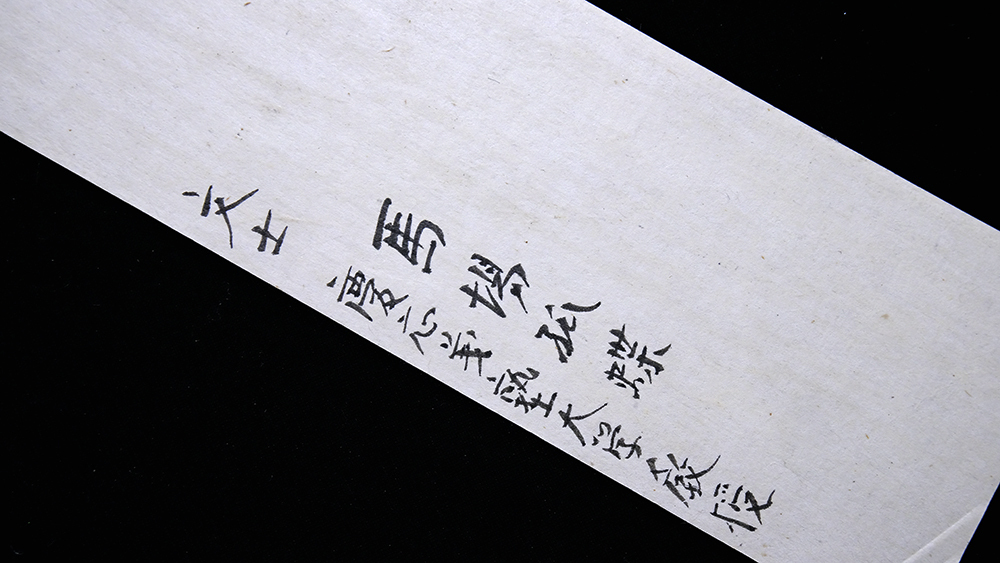 馬場孤蝶
文士 慶応義塾大学教授